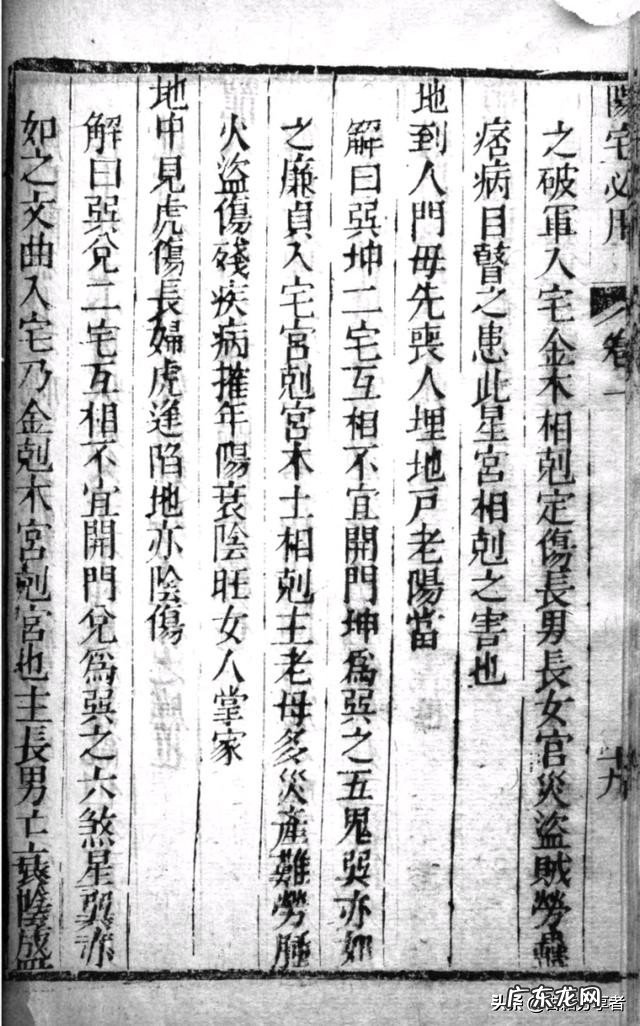 陽宅必用
卷一
十六
之破軍入宅金木相剋定傷長男長女官災盜賊勞蠱
痞病目瞽之患此星宮相剋之害也
地到人門母先喪人埋地戸老陽當
解曰巽坤二宅互相不宜開門坤爲巽之五鬼巽亦如
之廉貞入宅宮剋宮木土相剋主老母多災產難勞腫
火盜傷殘疾病摧年陽衰陰旺女人掌家
地中見虎傷長婦虎逢陷地亦陰傷
解曰巽兌二宅互相不宜開門兌爲巽之六煞星巽亦
如之文曲入宅乃金剋木宮剋宮也主長男亡衰陰盛
头条 @
享者
广东龙网